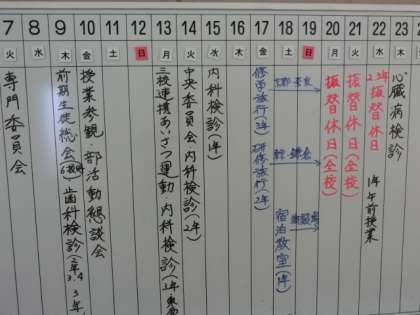 7 8 9 10 11 12 13 14 15 16 17 18 19 20 21 22 23
火 水 木 金 土 日 月 火 水 木 金 土 日 月 火 水 木
専門委員会
前期生徒総会 6校時 歯科検診(2年3.4 3年
授業参観・部活動懇談会
三校連携あいさつ運動 内科検診(3年
中央委員会 内科検診(2年)
内科検診(1年)
修学旅行(3年) 研修旅行(2年)
京都・奈良
鎌倉
宿泊教室(1年)
振替休日(全校)
振替休日(全校)
2.3年振替休日 1年午前授業
心臓病検診